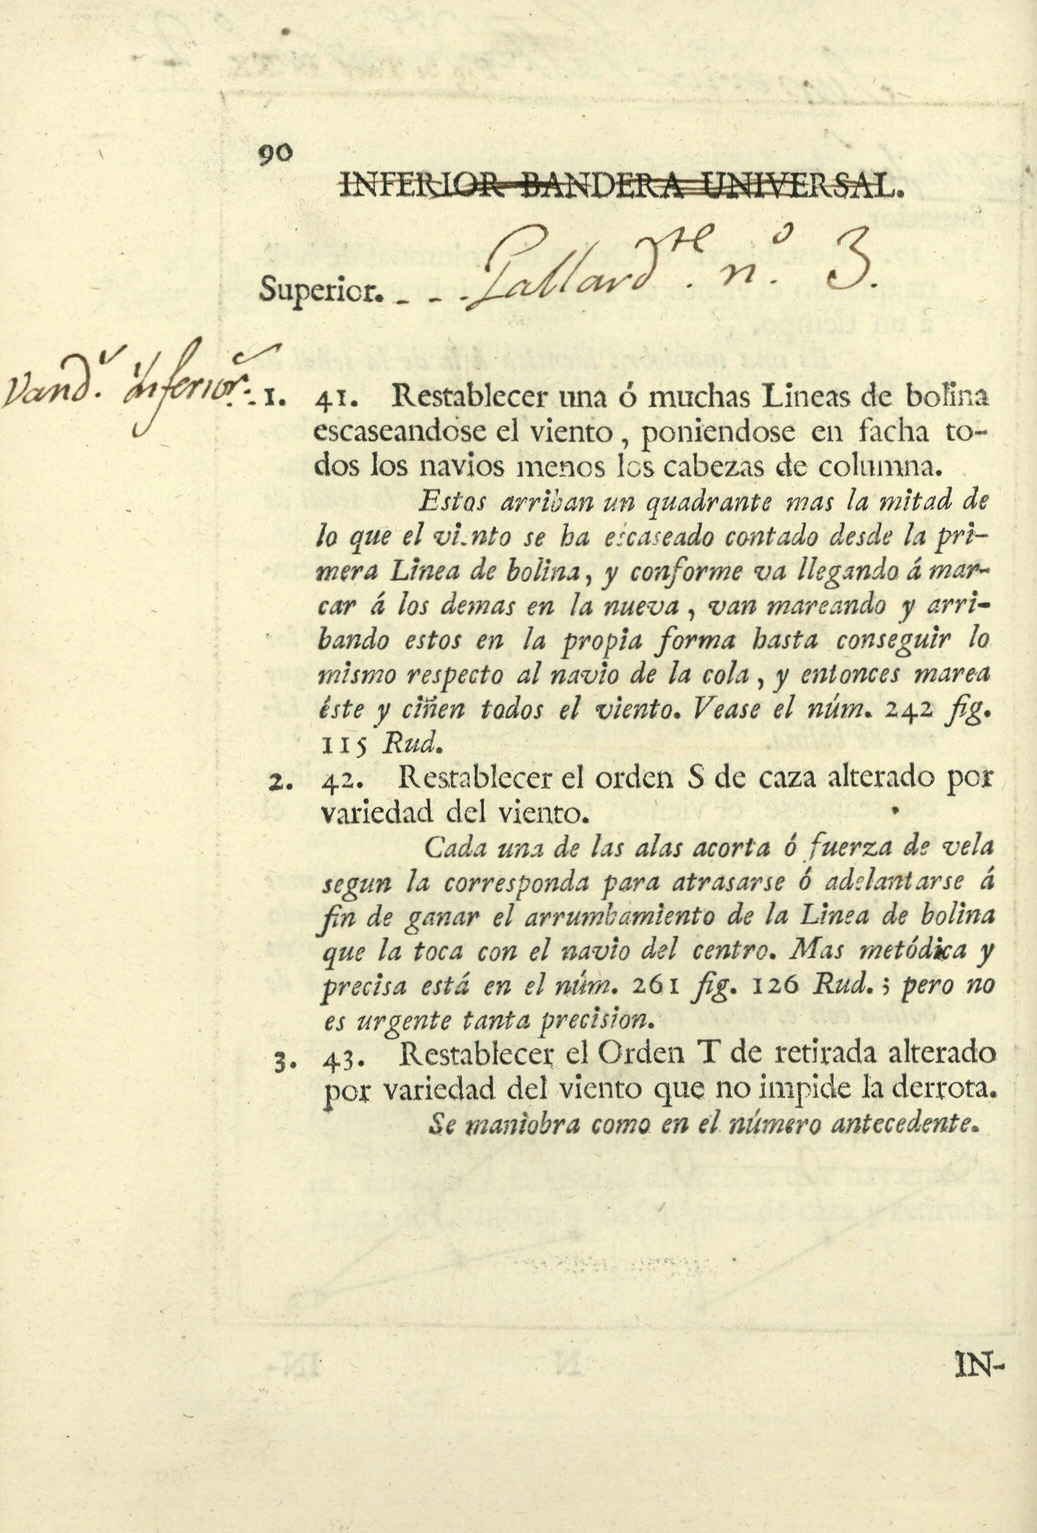 90
INFERIOR BANDERA UNIVERSAL.
Superior. - - - Gallardte. n.o 3.
Vand.a inferior. 1. 41. Restablecer una ó muchas Lineas de bolina
escaseandose el viento, poniendose en facha to-
dos los navios menos los cabezas de columna.
Estos arriban un quadrante mas la mitad de
lo que el viento se ha escaseado contado desde la pri-
mera Linea de bolina, y conforme va llegando á mar-
car á los demas en la nueva, van mareando y arri-
bando estos en la propia forma hasta conseguir lo
mismo respecto al navio de la cola, y entonces marea
éste y ciñen todos el viento. Vease el núm. 242 fig.
115 Rud.
2. 42. Restablecer el orden S de caza alterado por
variedad del viento.
Cada una de las alas acorta ó fuerza de vela
segun la corresponda para atrasarse ó adelantarse á
fin de ganar el arrumbamiento de la Linea de bolina
que la toca con el navio del centro. Mas metódica y
precisa está en el núm. 261 fig. 126 Rud.; pero no
es urgente tanta precision.
3. 43. Restablecer el Orden T de retirada alterado
por variedad del viento que no impide la derrota.
Se maniobra como en el número antecedente.
IN-